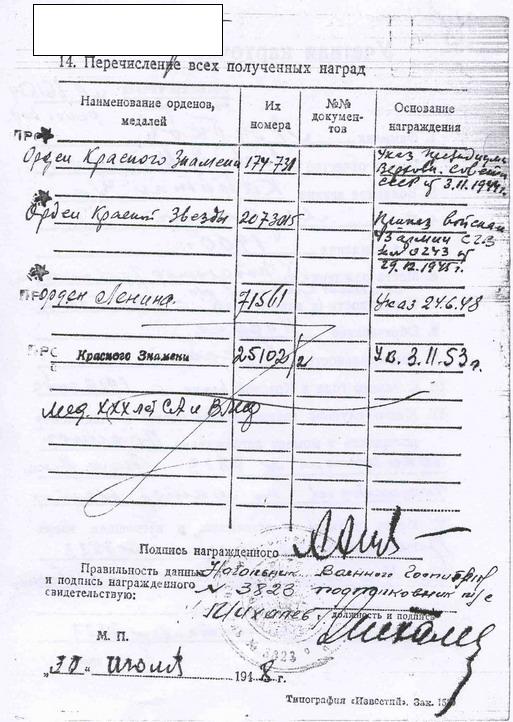 14. Перечисление всех полученных наград
Наименование орденов, медалей
Их номера
№№ документов
Основание награждения
Орден Красного Знамени 174731 Указ Президиума
Верховн. Совета
СССР от 3.11.1944г.
Орден Красной Звезды 2073015 Приказ войскам
29.12.1945г.
орден Ленина. 71561 Указ 24.6.48
Красного Знамени 25102/2 Ув. 3.11.53 г.
Мед. XXX лет СА и ВМФ
Подпись награжденного
Правильность данных Начальник Военного Госпиталя
и подпись награжденного № 3823 подполковник м/с
свидетельствую:
должность и подпись
М. П.
„30“ Июля 1948 г.
Типография «Известий». Зак.